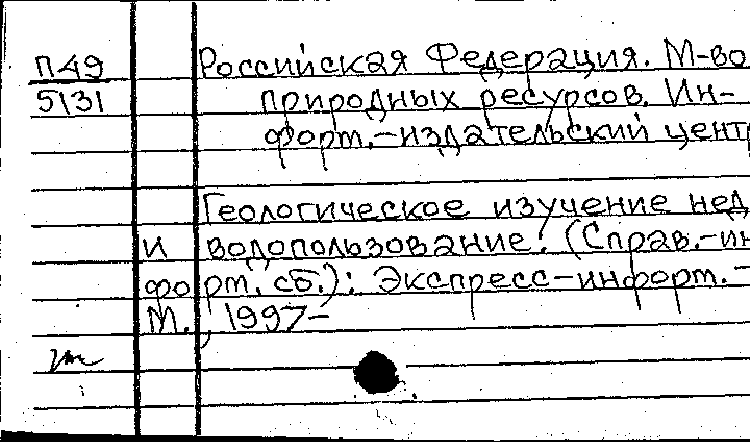 П49
5131
Российская Федерация. М-во
природных ресурсов. Ин-
форм.-издательский центр
Геологическое изучение нед
и водопользование: (Справ.-ин
форм. сб.): Экспресс-информ. -
М., 1997-